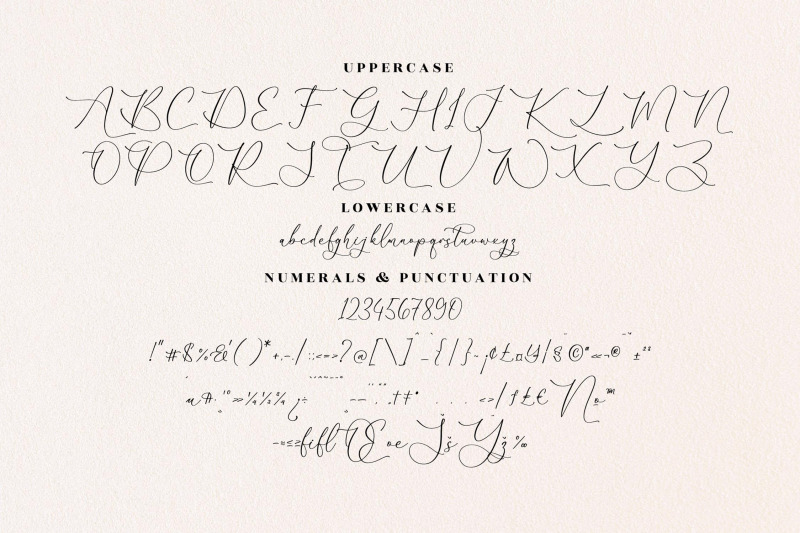 UPPERCASE
ABCDEFGHIJKLMN
OPQRSTUVWXYZ
LOWERCASE
abcdefghijklmnopqrstuvwxyz
NUMERALS & PUNCTUATION
1234567890
!"#$%&'()*+,-./:;<=>?@[\]^_`{|}~¡¢£¤¥¦§¨©ª«¬®¯°±²³
´µ¶·¸¹º»¼½¾¿÷ – — ' ' " " † ‡ • … ‹›/ƒ₤£€№™
−≈≤≥fiflŒœŠšŸž‰